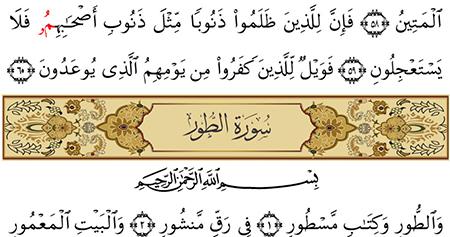 ٱلۡمَتِينُ ﴿٥٨﴾ فَإِنَّ لِلَّذِينَ ظَلَمُواْ ذَنُوبٗا مِّثۡلَ ذَنُوبِ أَصۡحَٰبِهِمُۥ فَلَا
يَسۡتَعۡجِلُونِ ﴿٥٩﴾ فَوَيۡلٞ لِّلَّذِينَ كَفَرُواْ مِن يَوۡمِهِمُ ٱلَّذِي يُوعَدُونَ ﴿٦٠﴾
سُورَةُ الطُّورِ
بِسۡمِ ٱللَّهِ ٱلرَّحۡمَٰنِ ٱلرَّحِيمِ
وَٱلطُّورِ وَكِتَٰبٖ مَّسۡطُورٖ ﴿١﴾ فِي رَقّٖ مَّنشُورٖ ﴿٢﴾ وَٱلۡبَيۡتِ ٱلۡمَعۡمُورِ